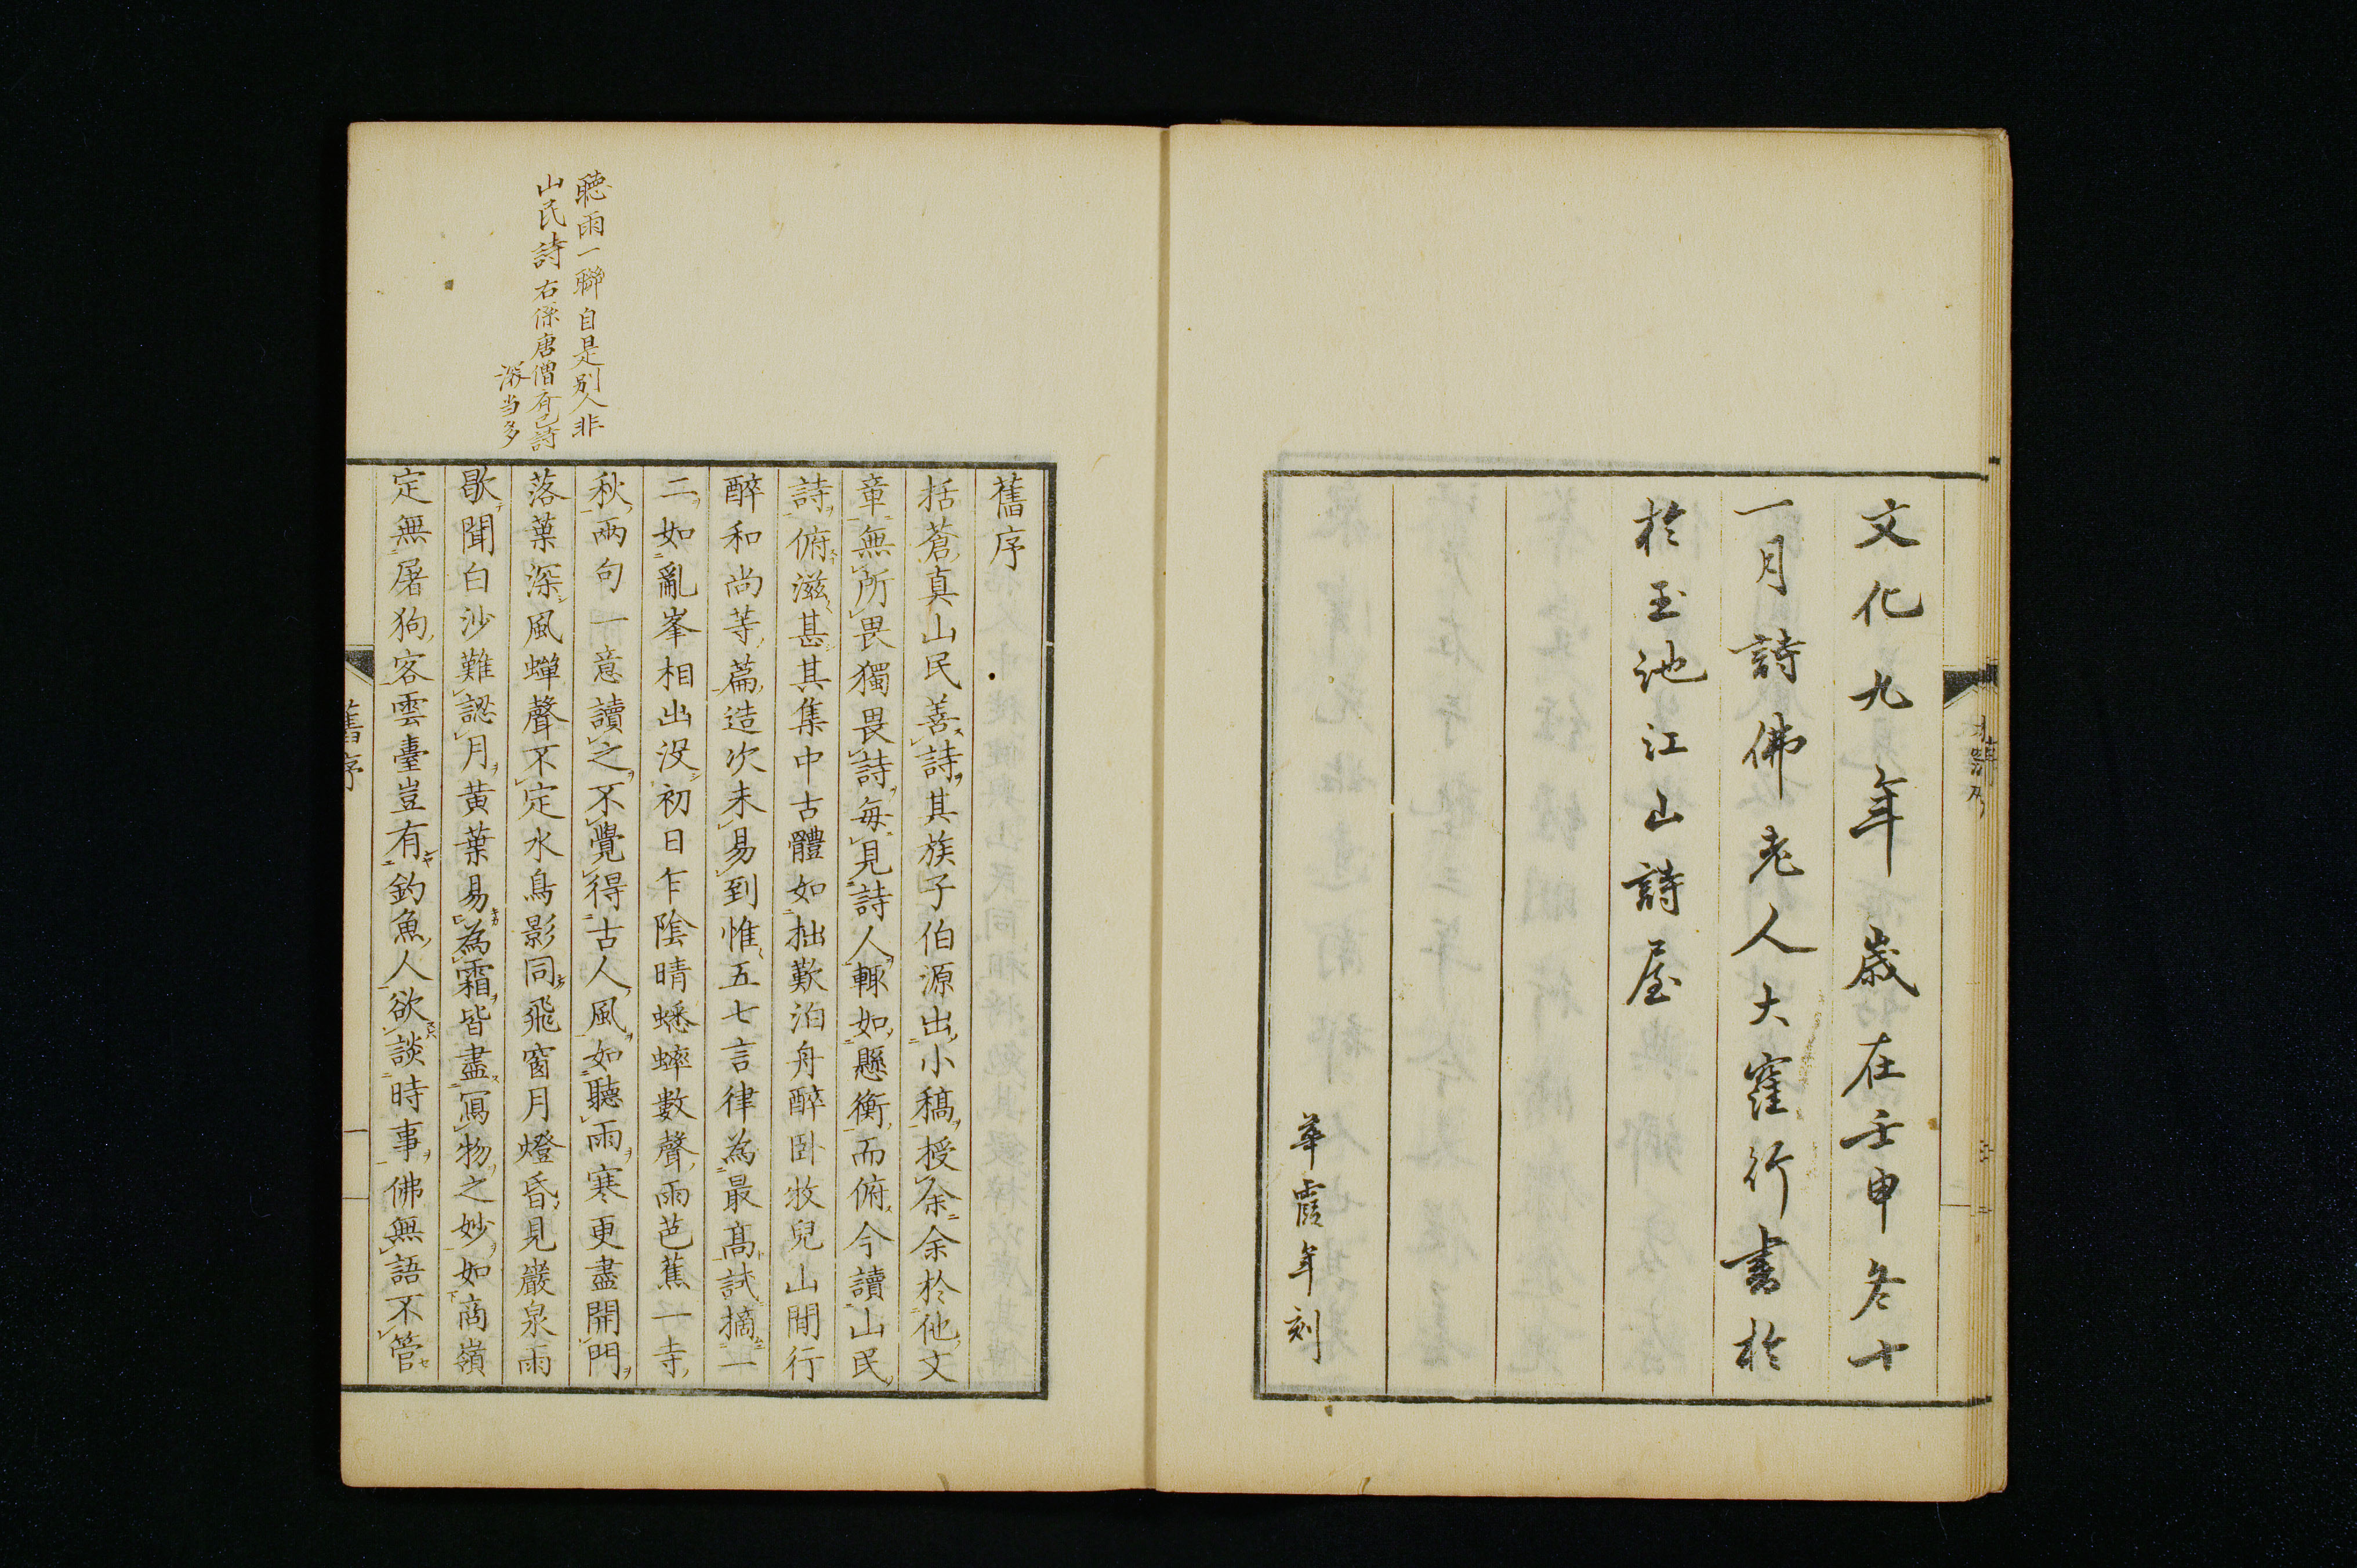 文化九年歳在壬申冬十
一月詩佛老人大窪行書於
於玉池江山詩屋
華霞年刻
聽雨一聯自是別人非
山民詩右係唐僧斉己詩
深当多
舊序
括蒼真山民善詩其族子伯源出小稿授余余於他文
章無所畏獨畏詩每見詩人輙如懸衡而俯今讀山民
詩俯滋甚其集中古體如拙歎泊舟醉卧牧兒山間行
醉和尚等篇造次未易到惟五七言律為最高試摘一
二如亂峯相出沒初日乍陰晴蟋蟀數聲雨芭蕉一寺
秋兩句一意讀之不覺得古人風如聽雨寒更盡開門
落葉深風蟬聲不定水鳥影同飛窗月燈昏見巖泉雨
歇聞白沙難認月黃葉易為霜皆盡寫物之妙如商嶺
定無屠狗客雲臺豈有釣魚人欲談時事佛無語不管
舊序